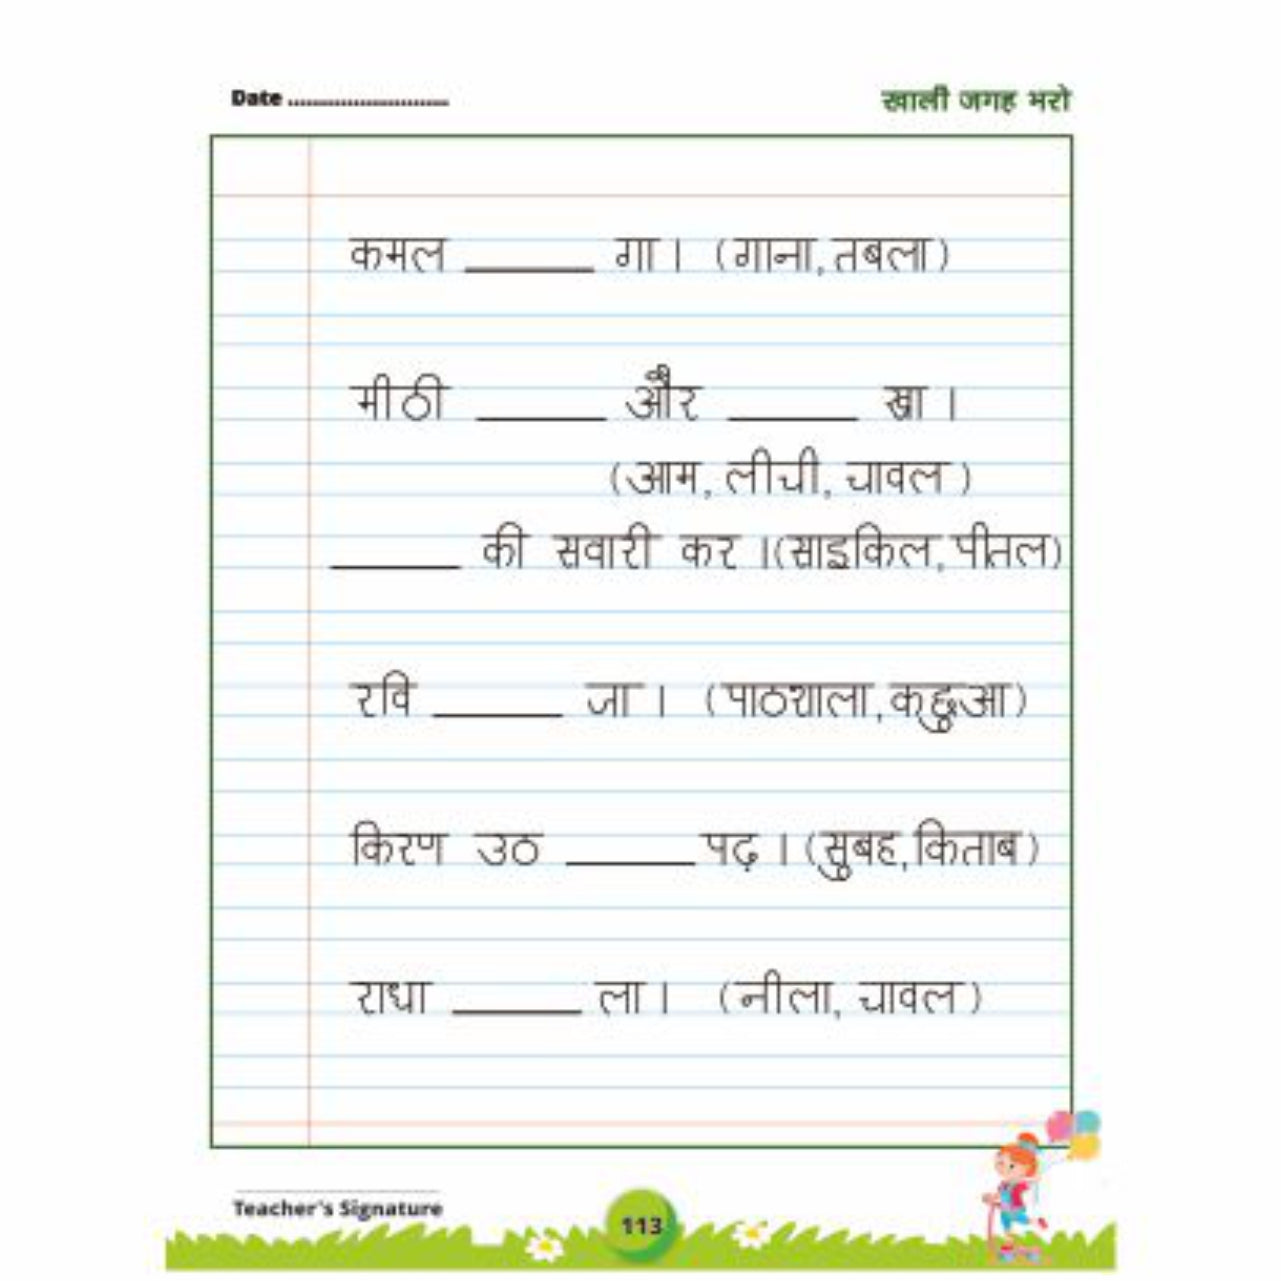 Date ............................ खाली जगह भरो
कमल ______ गा । (गाना, तबला)
मीठी ______ और ______ खा ।
(आम, लीची, चावल )
______ की सवारी कर ।(साइकिल, पीतल)
रवि ______ जा । (पाठशाला,कछुआ)
किरण उठ ______ पढ़ । (सुबह,किताब)
राधा ______ ला । (नीला, चावल)
Teacher's Signature
113